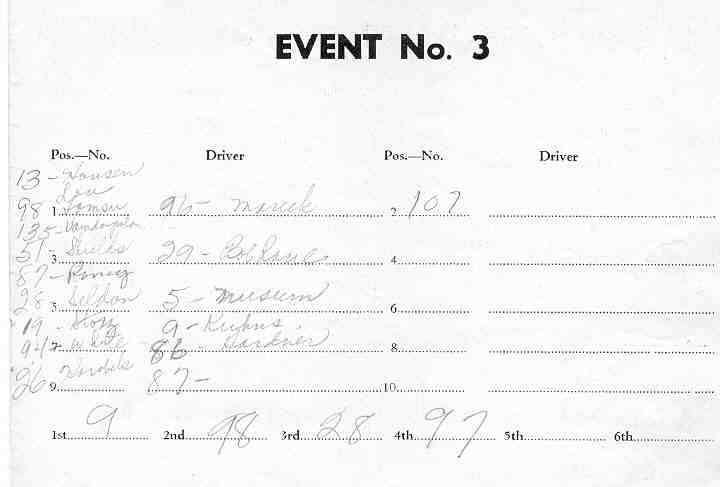 EVENT No. 3
Pos.—No. Driver Pos.—No. Driver
13 - Hansen
Lou
98 1. 96 - Mareck 2. 107
135 -
51 - Shields
3. 29 - Bob 4.
87 -
28 Seldon
5. 5 - museum 6.
19 - Story 9 - Kuhns
White 86 - Gardner 8.
26
9. 87 - 10.
1st 9 2nd 98 3rd 28 4th 97 5th 6th